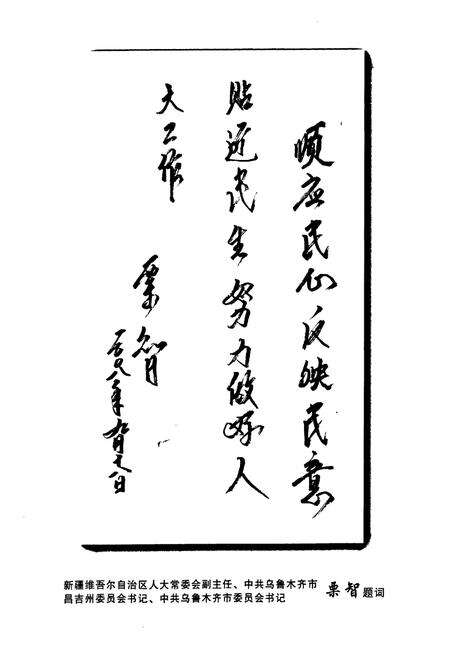 顺应民心反映民意
贴近民生努力做好人
大工作
栗智
二〇〇八年
新疆维吾尔自治区人大常委会副主任、中共乌鲁木齐市
昌吉州委员会书记、中共乌鲁木齐市委员会书记
栗智题词